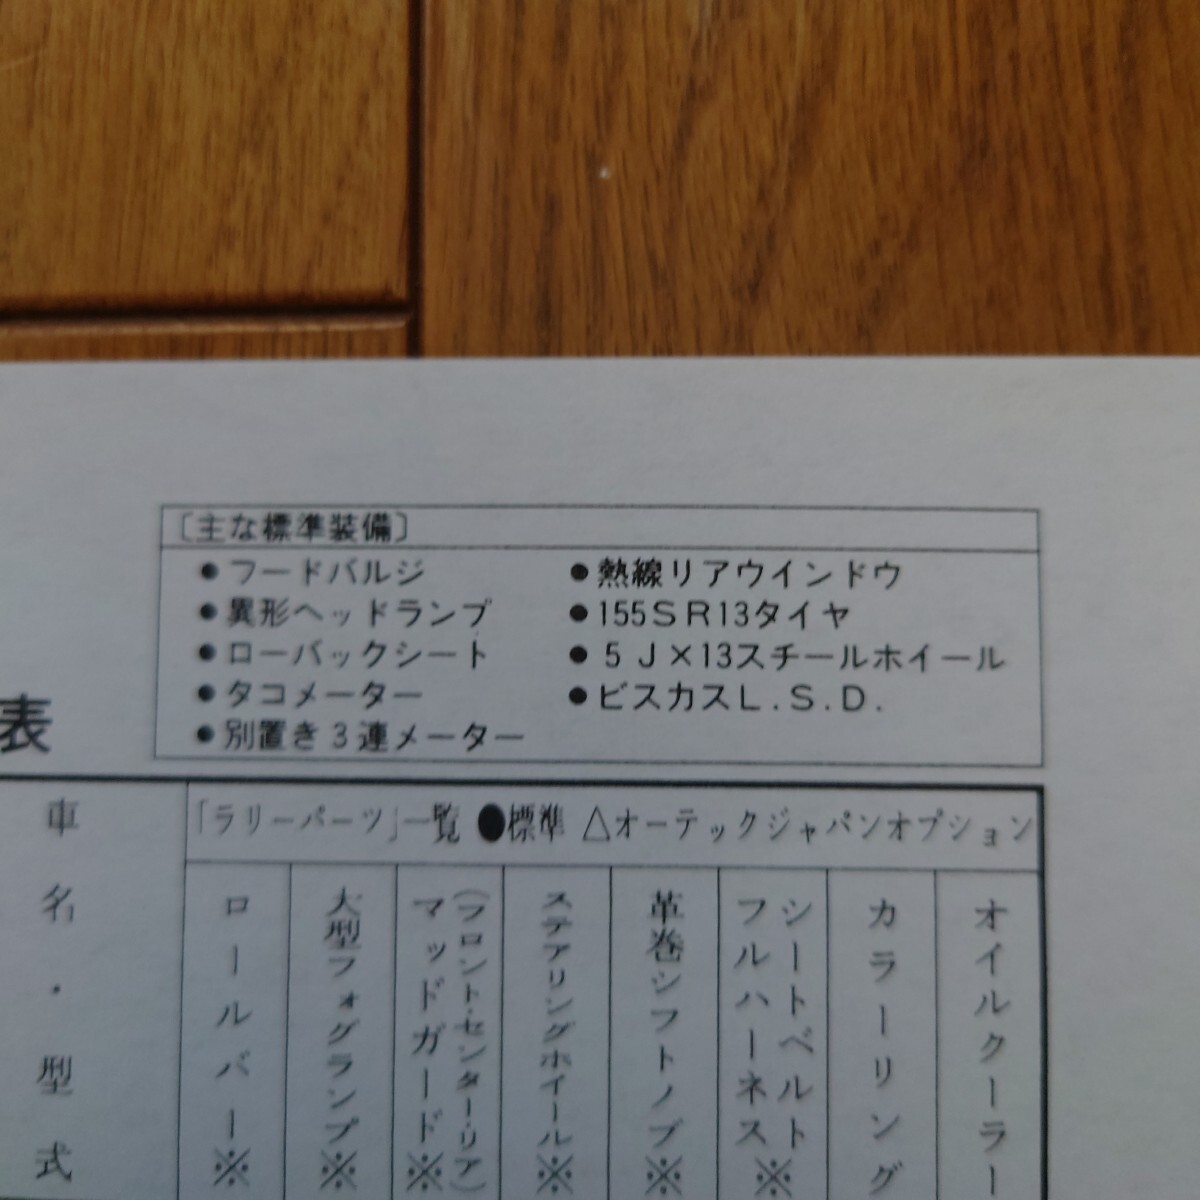 〔主な標準装備〕
●フードバルジ
●異形ヘッドランプ
●ローバックシート
●タコメーター
●別置き3連メーター
●熱線リアウインドウ
●155SR13タイヤ
●5J×13スチールホイール
●ビスカスL.S.D.
表
車名・型式
「ラリーパーツ」一覧 ●標準 △オーテックジャパンオプション
ロールバー※
大型フォグランプ※
マッドガード※
(フロント・センター・リア)
ステアリングホイール※
革巻シフトノブ※
シートベルト
フルハーネス※
カラーリング
オイルクーラー